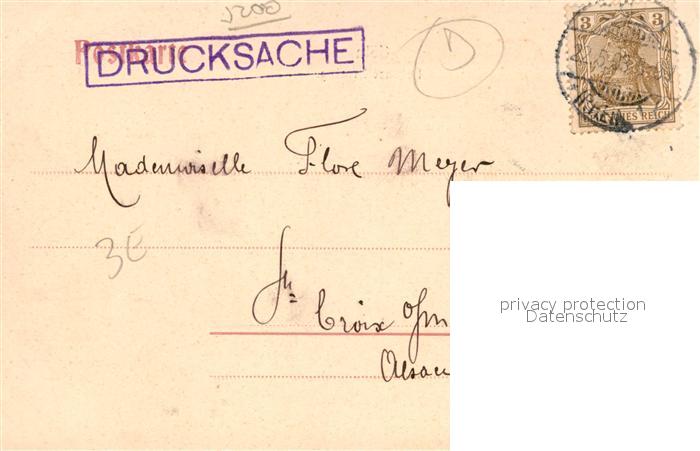 1200
Postkarte
DRUCKSACHE
D
3 3
DEUTSCHES REICH
Mademoiselle Flore Meyer
3E
Croix
Alsac
privacy protection
Datenschutz